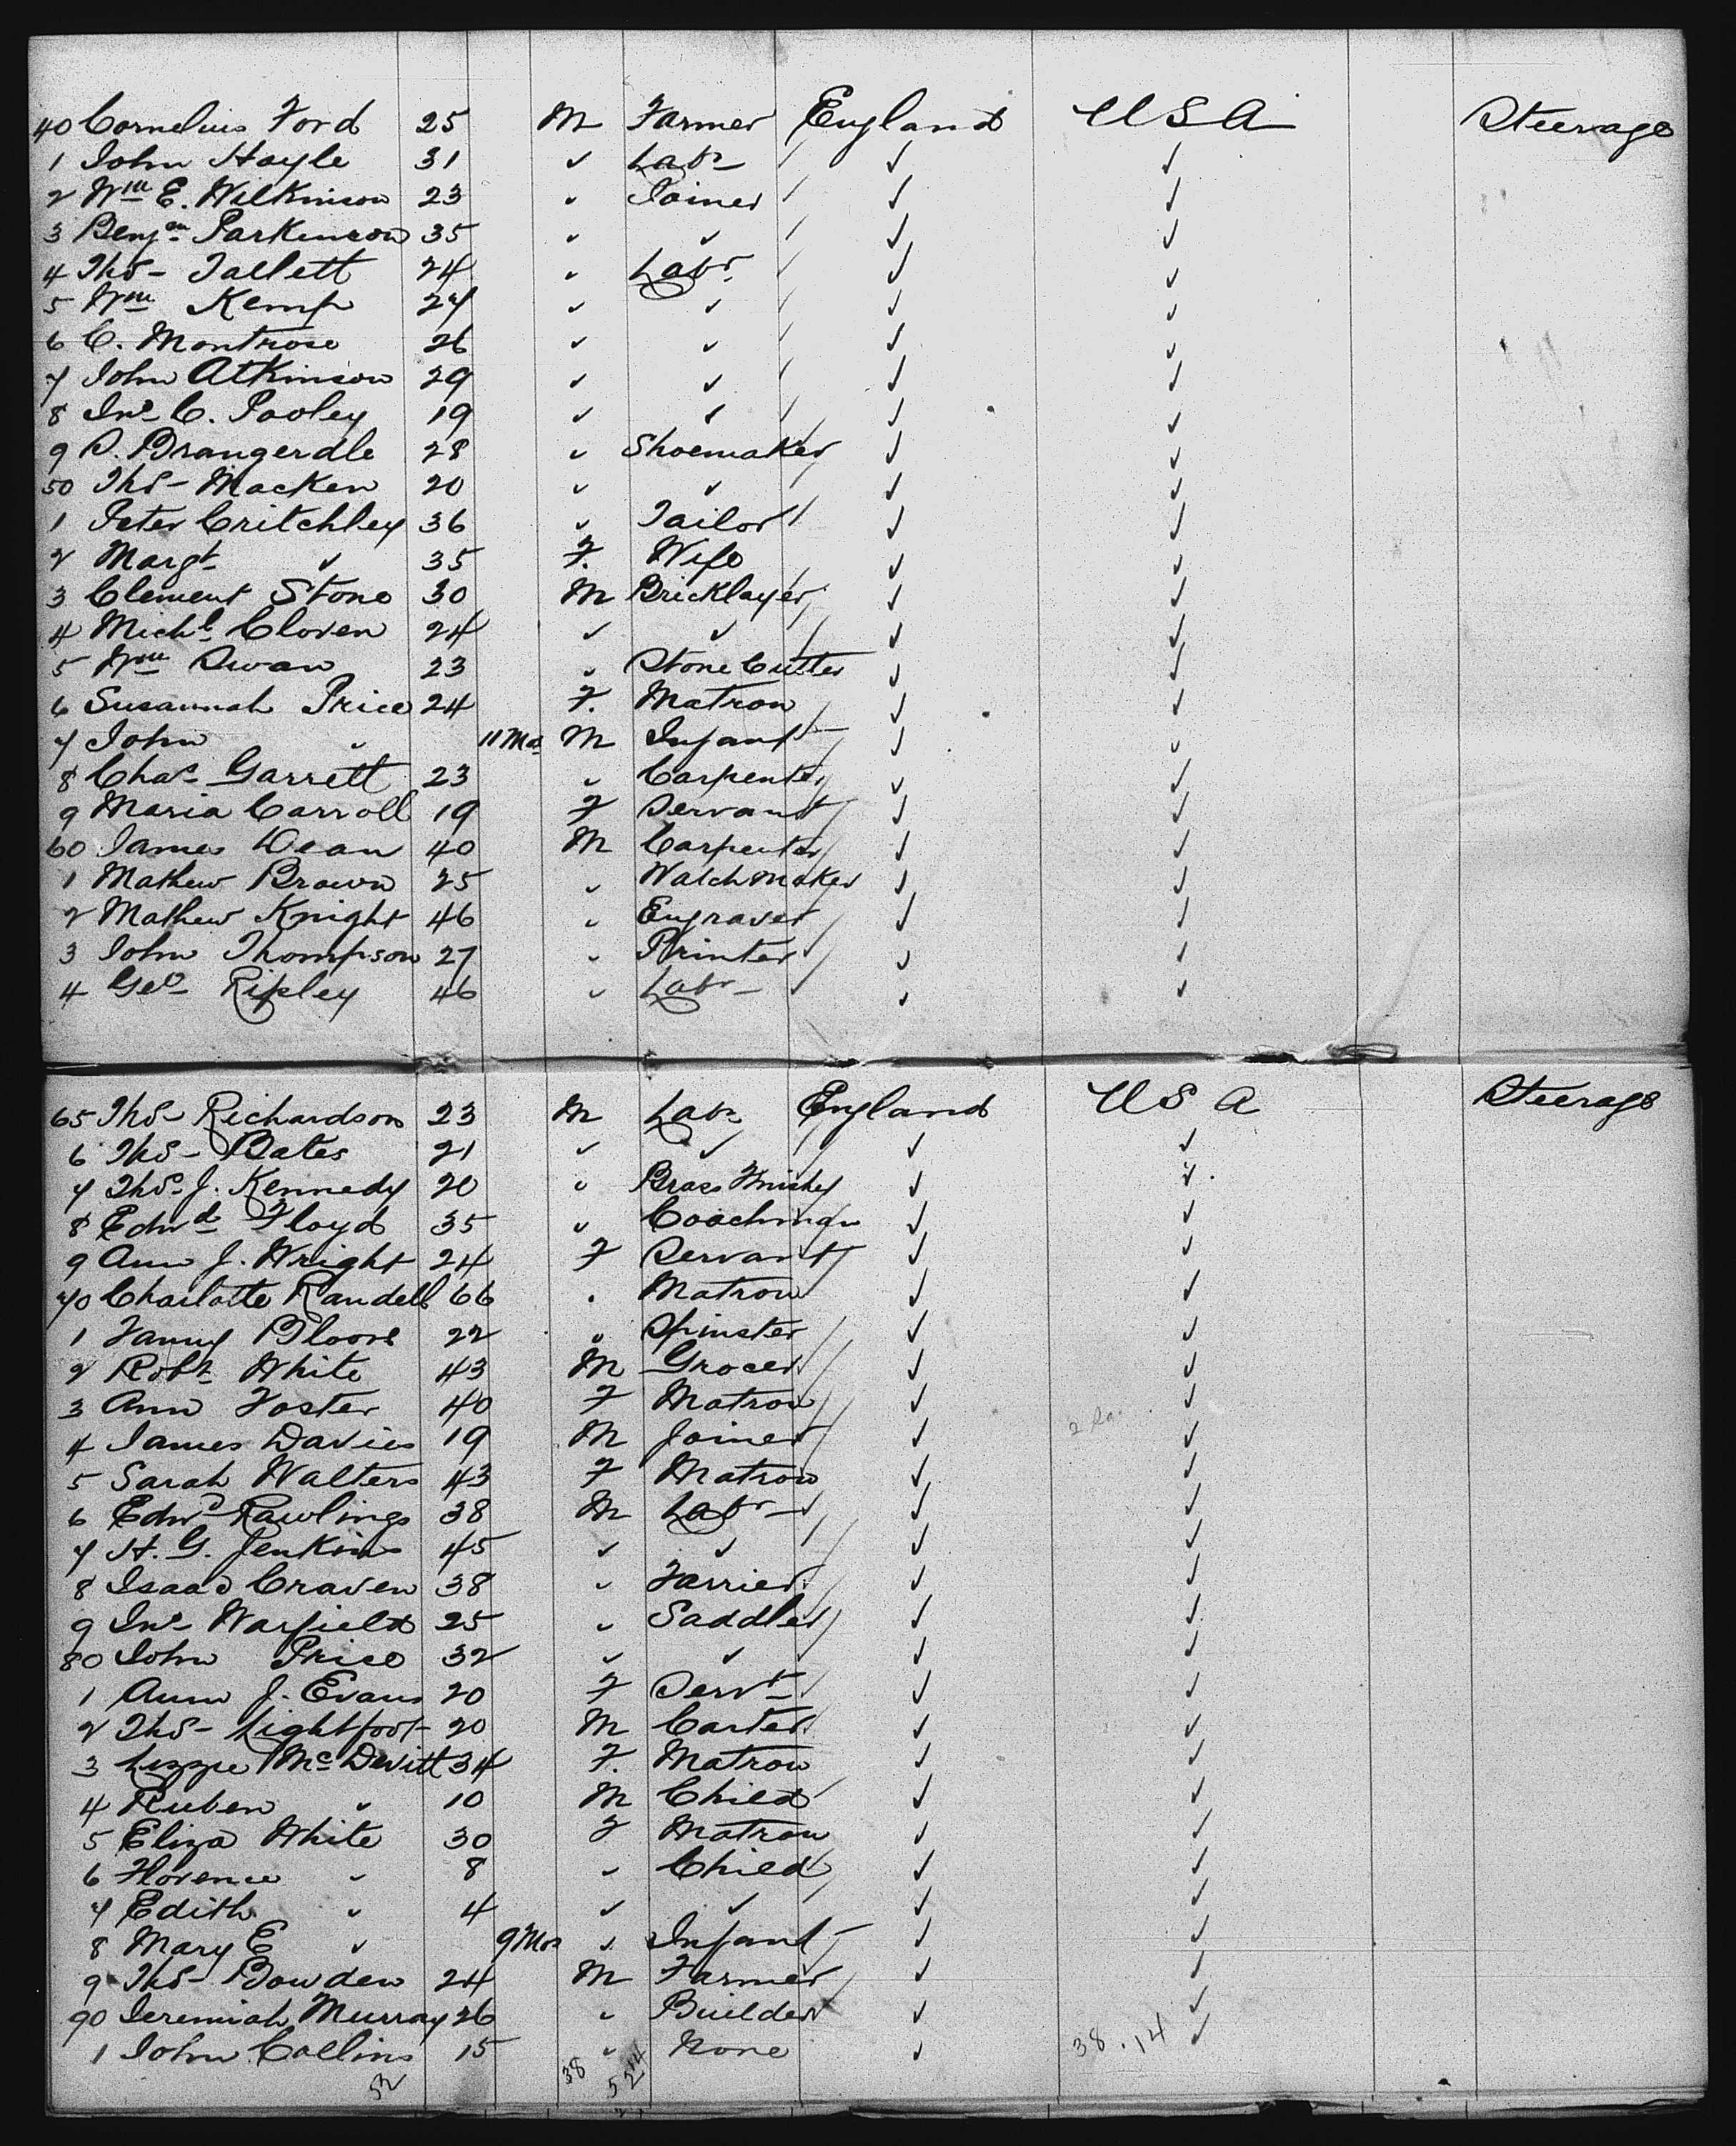 40 Cornelius Ford 25 M Farmer England USA Steerage
1 John Hoyle 31 " Labr " "
2 Wm E. Wilkinson 23 " Joiner " "
3 Benjn Parkinson 35 " " " "
4 Thos Tallett 24 " Labr " "
5 Wm Kemp 27 " " " "
6 C. Montrose 26 " " " "
7 John Atkinson 29 " " " "
8 Jno C. Pooley 19 " " " "
9 S. Brangerdle 28 " Shoemaker " "
50 Thos Macken 20 " " " "
1 Peter Critchley 36 " Tailor " "
2 Margt " 35 F. Wife " "
3 Clement Stone 30 M Bricklayer " "
4 Michl Cloven 24 " " " "
5 Wm Swan 23 " Stone Cutter " "
6 Susannah Price 24 F. Matron " "
7 John " 11 Mos M Infant " "
8 Chas Garrett 23 " Carpenter " "
9 Maria Carroll 19 F Servant " "
60 James Dean 40 M Carpenter " "
1 Mathew Brown 25 " Watchmaker " "
2 Mathew Knight 46 " Engraver " "
3 John Thompson 27 " Printer " "
4 Geo Ripley 46 " Labr " "
65 Thos Richardson 23 M Labr England USA Steerage
6 Thos Bates 21 " " " "
7 Thos J. Kennedy 20 " Brass Finisher " "
8 Edwd Floyd 35 " Coachman " "
9 Ann J. Wright 24 F Servant " "
70 Charlotte Randell 66 " Matron " "
1 Fanny Bloore 22 " Spinster " "
2 Robt White 43 M Grocer " "
3 Ann Foster 40 F Matron " "
4 James Davies 19 M Joiner " "
5 Sarah Walters 43 F Matron " "
6 Edwd Rawlings 38 M Labr " "
7 H. G. Jenkins 45 " " " "
8 Isaac Craven 38 " Farrier " "
9 Jno Warfield 25 " Saddler " "
80 John Price 32 " " " "
1 Ann J. Evans 20 F Servt " "
2 Thos Lightfoot 20 M Carter " "
3 Lizzie McDevitt 34 F. Matron " "
4 Ruben " 10 M Child " "
5 Eliza White 30 F Matron " "
6 Florence " 8 " Child " "
7 Edith " 4 " " " "
8 Mary E " 9 Mos " Infant " "
9 Thos Bowden 24 M Farmer " "
90 Jeremiah Murray 26 " Builder " "
1 John Collins 15 " None " "
38 . 14
52 38